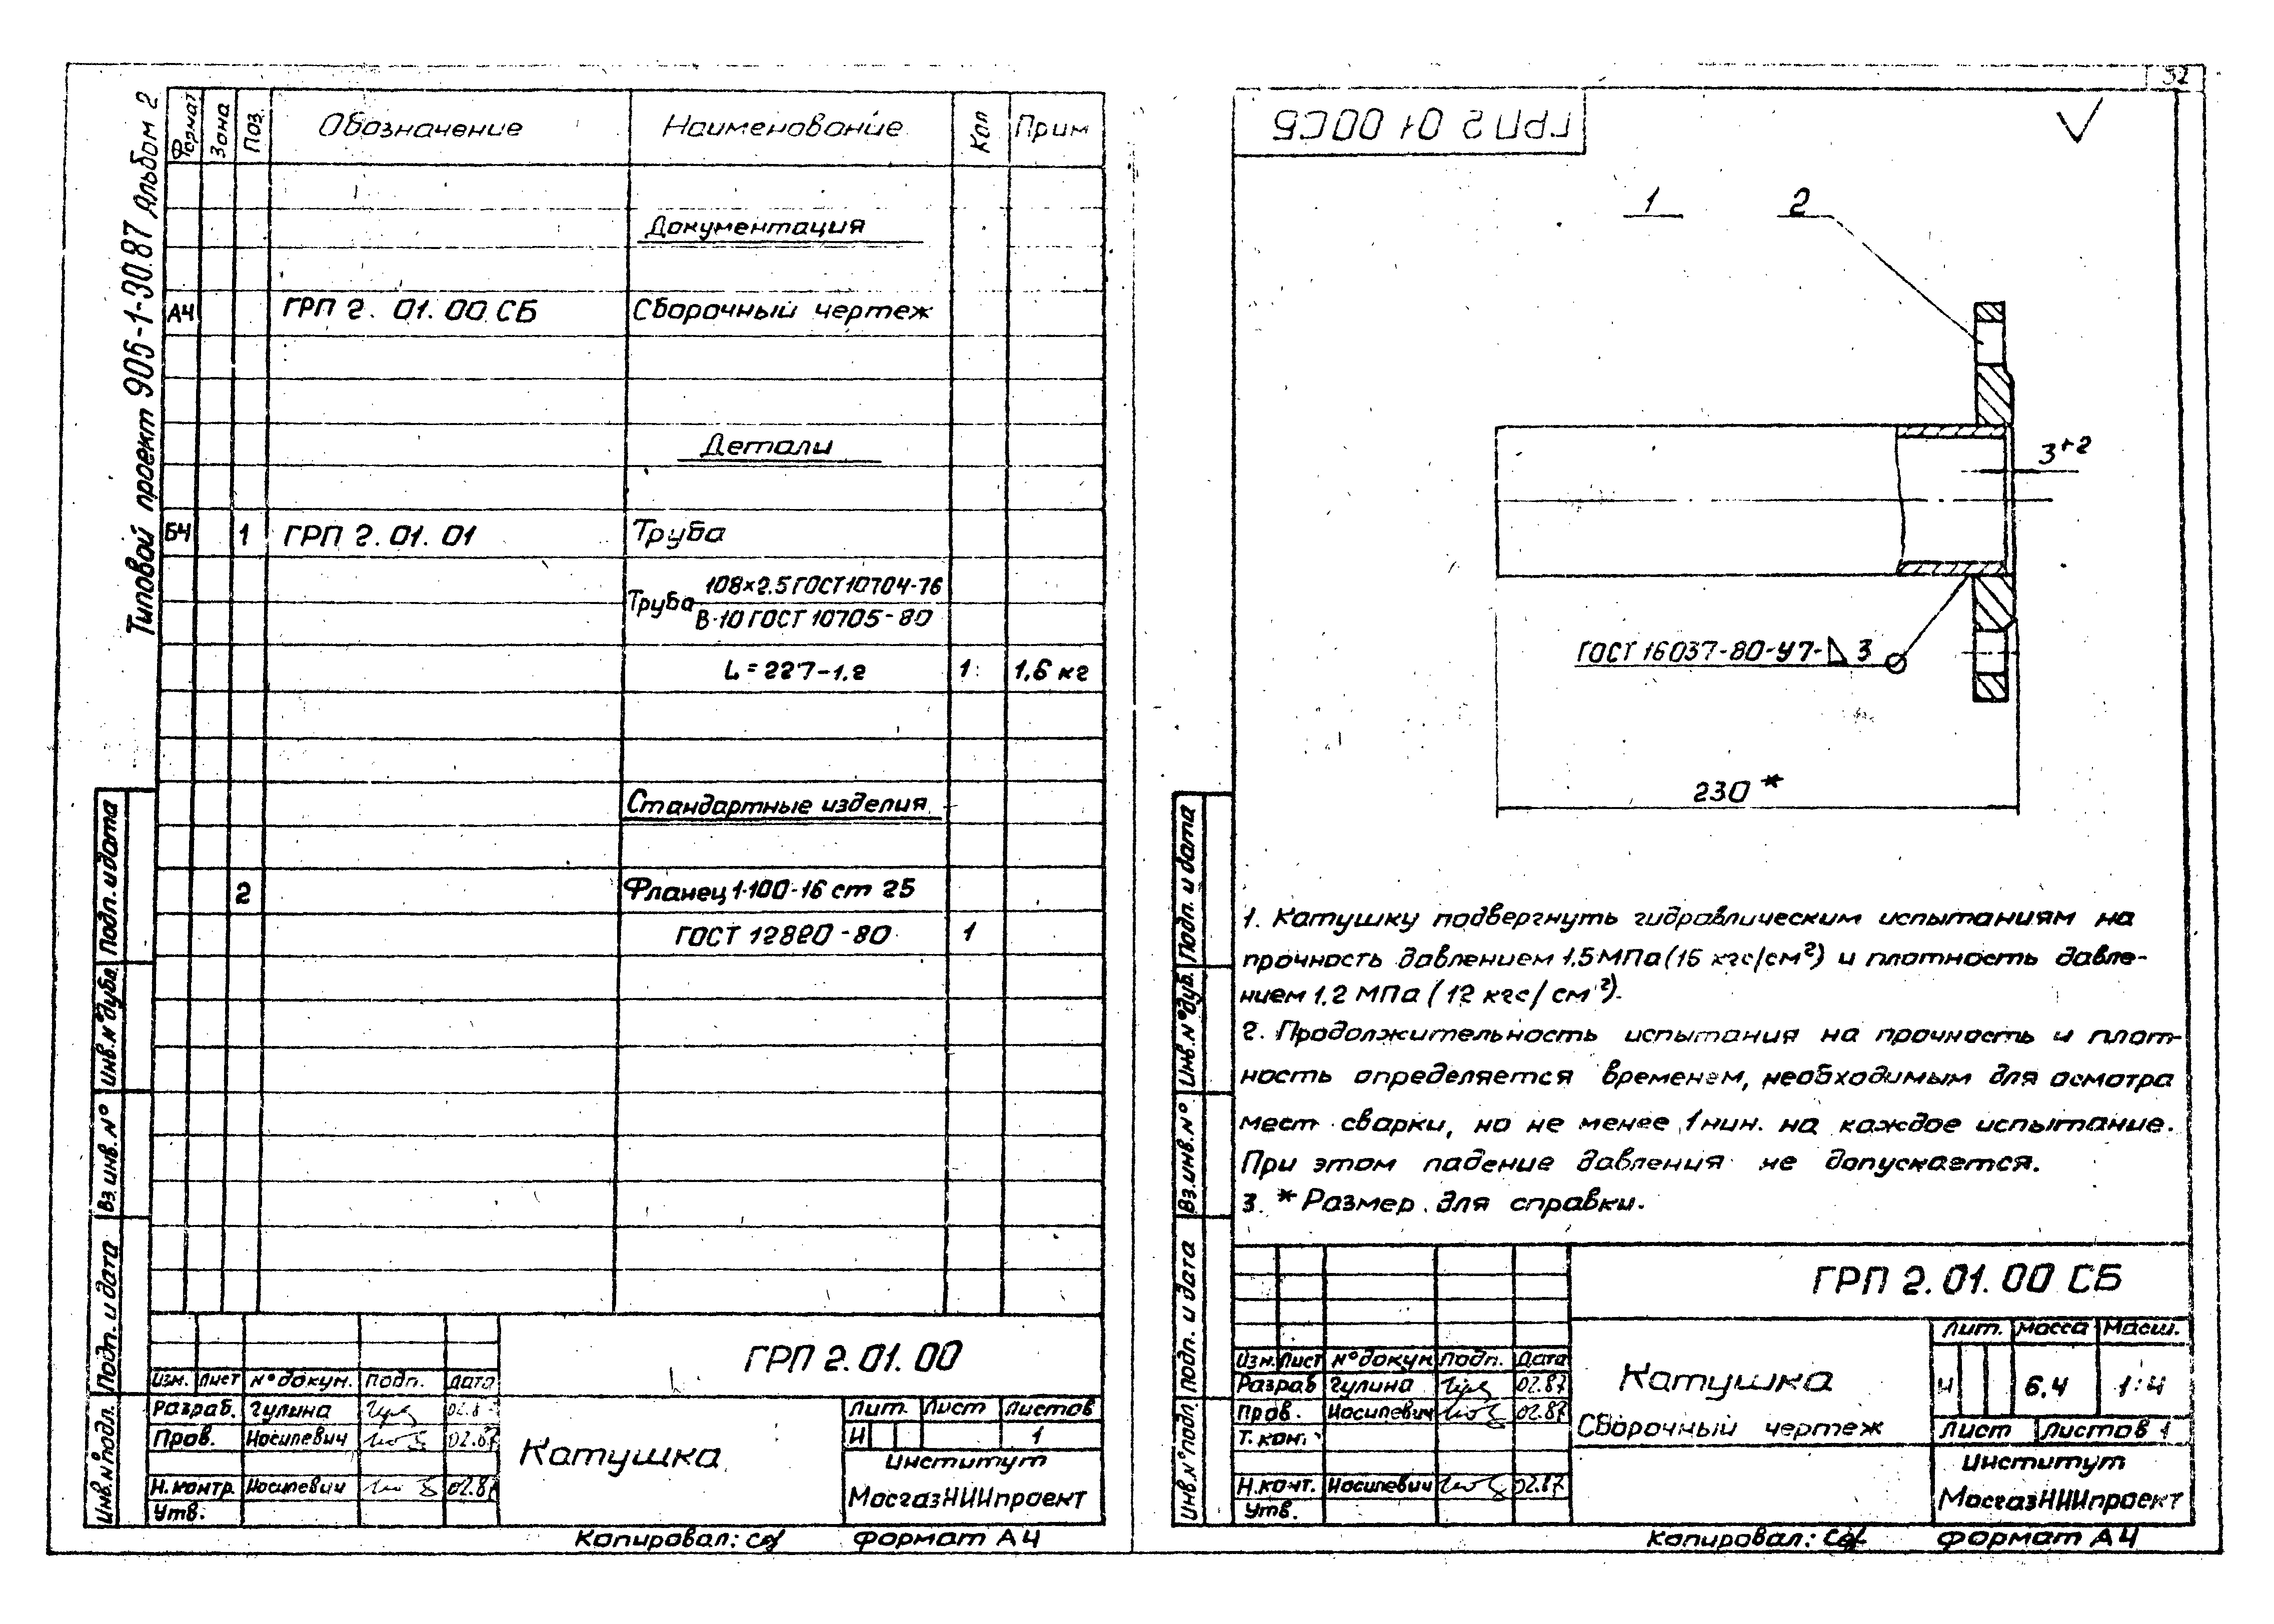 Типовой проект 905-1-30.87 Альбом 2
Формат Зона Поз. Обозначение Наименование Кол Прим
Документация
А4 ГРП 2. 01. 00 СБ Сборочный чертеж
Детали
БЧ 1 ГРП 2. 01. 01 Труба
Труба 108×2.5 ГОСТ 10704-76
В-10 ГОСТ 10705-80
L = 227-1.2 1 1,6 кг
Стандартные изделия
2 Фланец 1-100-16 ст 25
ГОСТ 12820-80 1
Подп. и дата
Инв. № дубл.
Вз. инв. №
Подп. и дата
Инв. № подл.
ГРП 2. 01. 00
Изм. Лист № докум. Подп. Дата
Разраб. Гулина
Пров. Иосилевич 02.87
Н. контр. Иосилевич 02.87
Утв.
Катушка
Лит. Лист Листов
И 1
Институт
МосгазНИИпроект
Копировал: Формат А4
32
ГРП 2 01 00СБ
1 2
3+2
ГОСТ 16037-80-У7-◺ 3
230 *
1. Катушку подвергнуть гидравлическим испытаниям на
прочность давлением 1,5 МПа (15 кгс/см²) и плотность давле-
нием 1,2 МПа (12 кгс/см²).
2. Продолжительность испытания на прочность и плот-
ность определяется временем, необходимым для осмотра
мест сварки, но не менее 1 мин. на каждое испытание.
При этом падение давления не допускается.
3. * Размер для справки.
Подп. и дата
Инв. № дуб.
Вз. инв. №
Подп. и дата
Инв. № подл
ГРП 2. 01. 00 СБ
Изм. Лист № докум Подп. Дата
Разраб Гулина 02.87
Пров. Иосилевич 02.87
Т. кон.
Н. конт. Иосилевич 02.87
Утв.
Катушка
Сборочный чертеж
Лит. Масса Масш.
И 6,4 1:4
Лист Листов 1
Институт
МосгазНИИпроект
Копировал: Формат А4